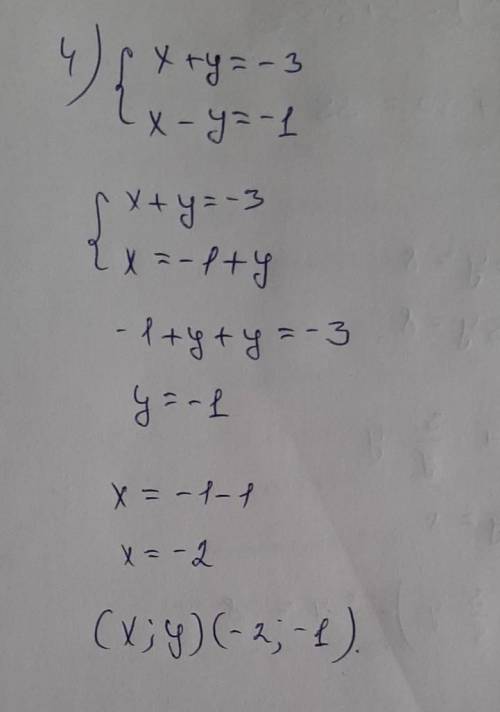 4) { x + y = -3
x - y = -1
{ x + y = -3
x = -1 + y
-1 + y + y = -3
y = -1
x = -1 - 1
x = -2
(x; y) (-2; -1).